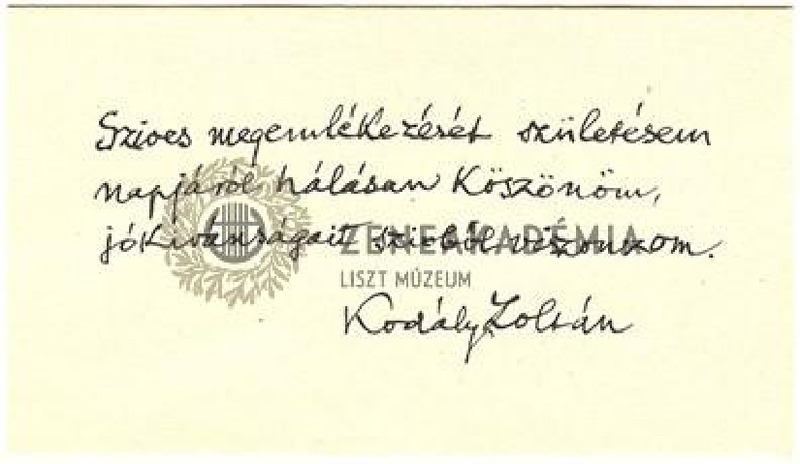 Szives megemlékezését születésem
napjáról hálásan Köszönöm,
jókivánságait szivből viszonzom.
ZENEAKADÉMIA
LISZT MÚZEUM
Kodály Zoltán